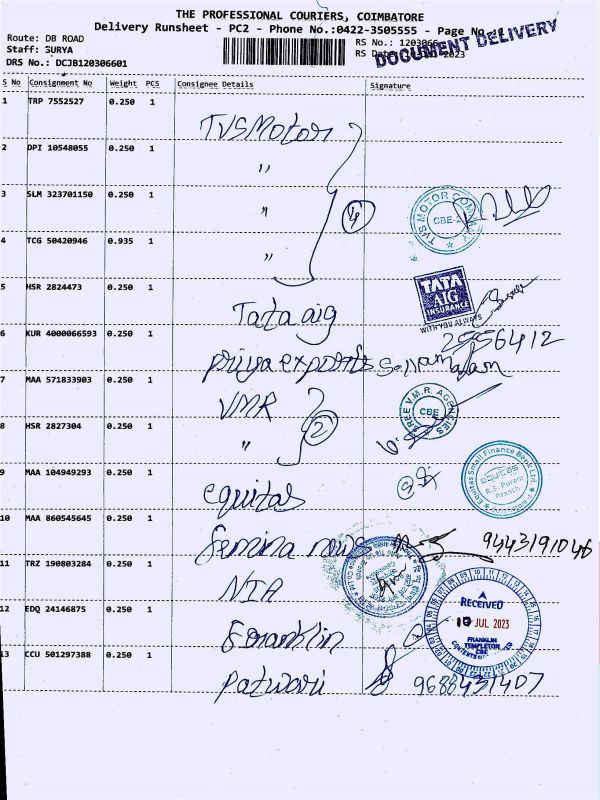 THE PROFESSIONAL COURIERS, COIMBATORE
Delivery Runsheet - PC2 - Phone No.:0422-3505555 - Page No.
Route: DB ROAD
Staff: SURYA
DRS No.: DCJB120306601
RS No.: 1203066
RS 2023
DOCUMENT DELIVERY
S No Consignment No Weight PCS Consignee Details Signature
1 TRP 7552527 0.250 1 TVS Motor
2 DPI 10548055 0.250 1 "
3 SLM 323701150 0.250 1 "
4
TVS MOTOR COMPANY
CBE-2
4 TCG 50420946 0.935 1 "
5 HSR 2824473 0.250 1 Tata aig
TATA
AIG
INSURANCE
WITH YOU ALWAYS
2556412
6 KUR 4000066593 0.250 1 priya exports
7 MAA 571833903 0.250 1 VMR
SREE V.M.R. AGENCIES
CBE
2
8 HSR 2827304 0.250 1 "
9 MAA 104949293 0.250 1 equitas
Equitas Small Finance Bank Ltd
equitas
R.S. Puram
Branch
10 MAA 860545645 0.250 1 femina news 9443191046
11 TRZ 190803284 0.250 1 NIA
12 EDQ 24146875 0.250 1 Franklin
RECEIVED
10 JUL 2023
FRANKLIN
TEMPLETON
CBE
13 CCU 501297388 0.250 1 Patwari 9688431407